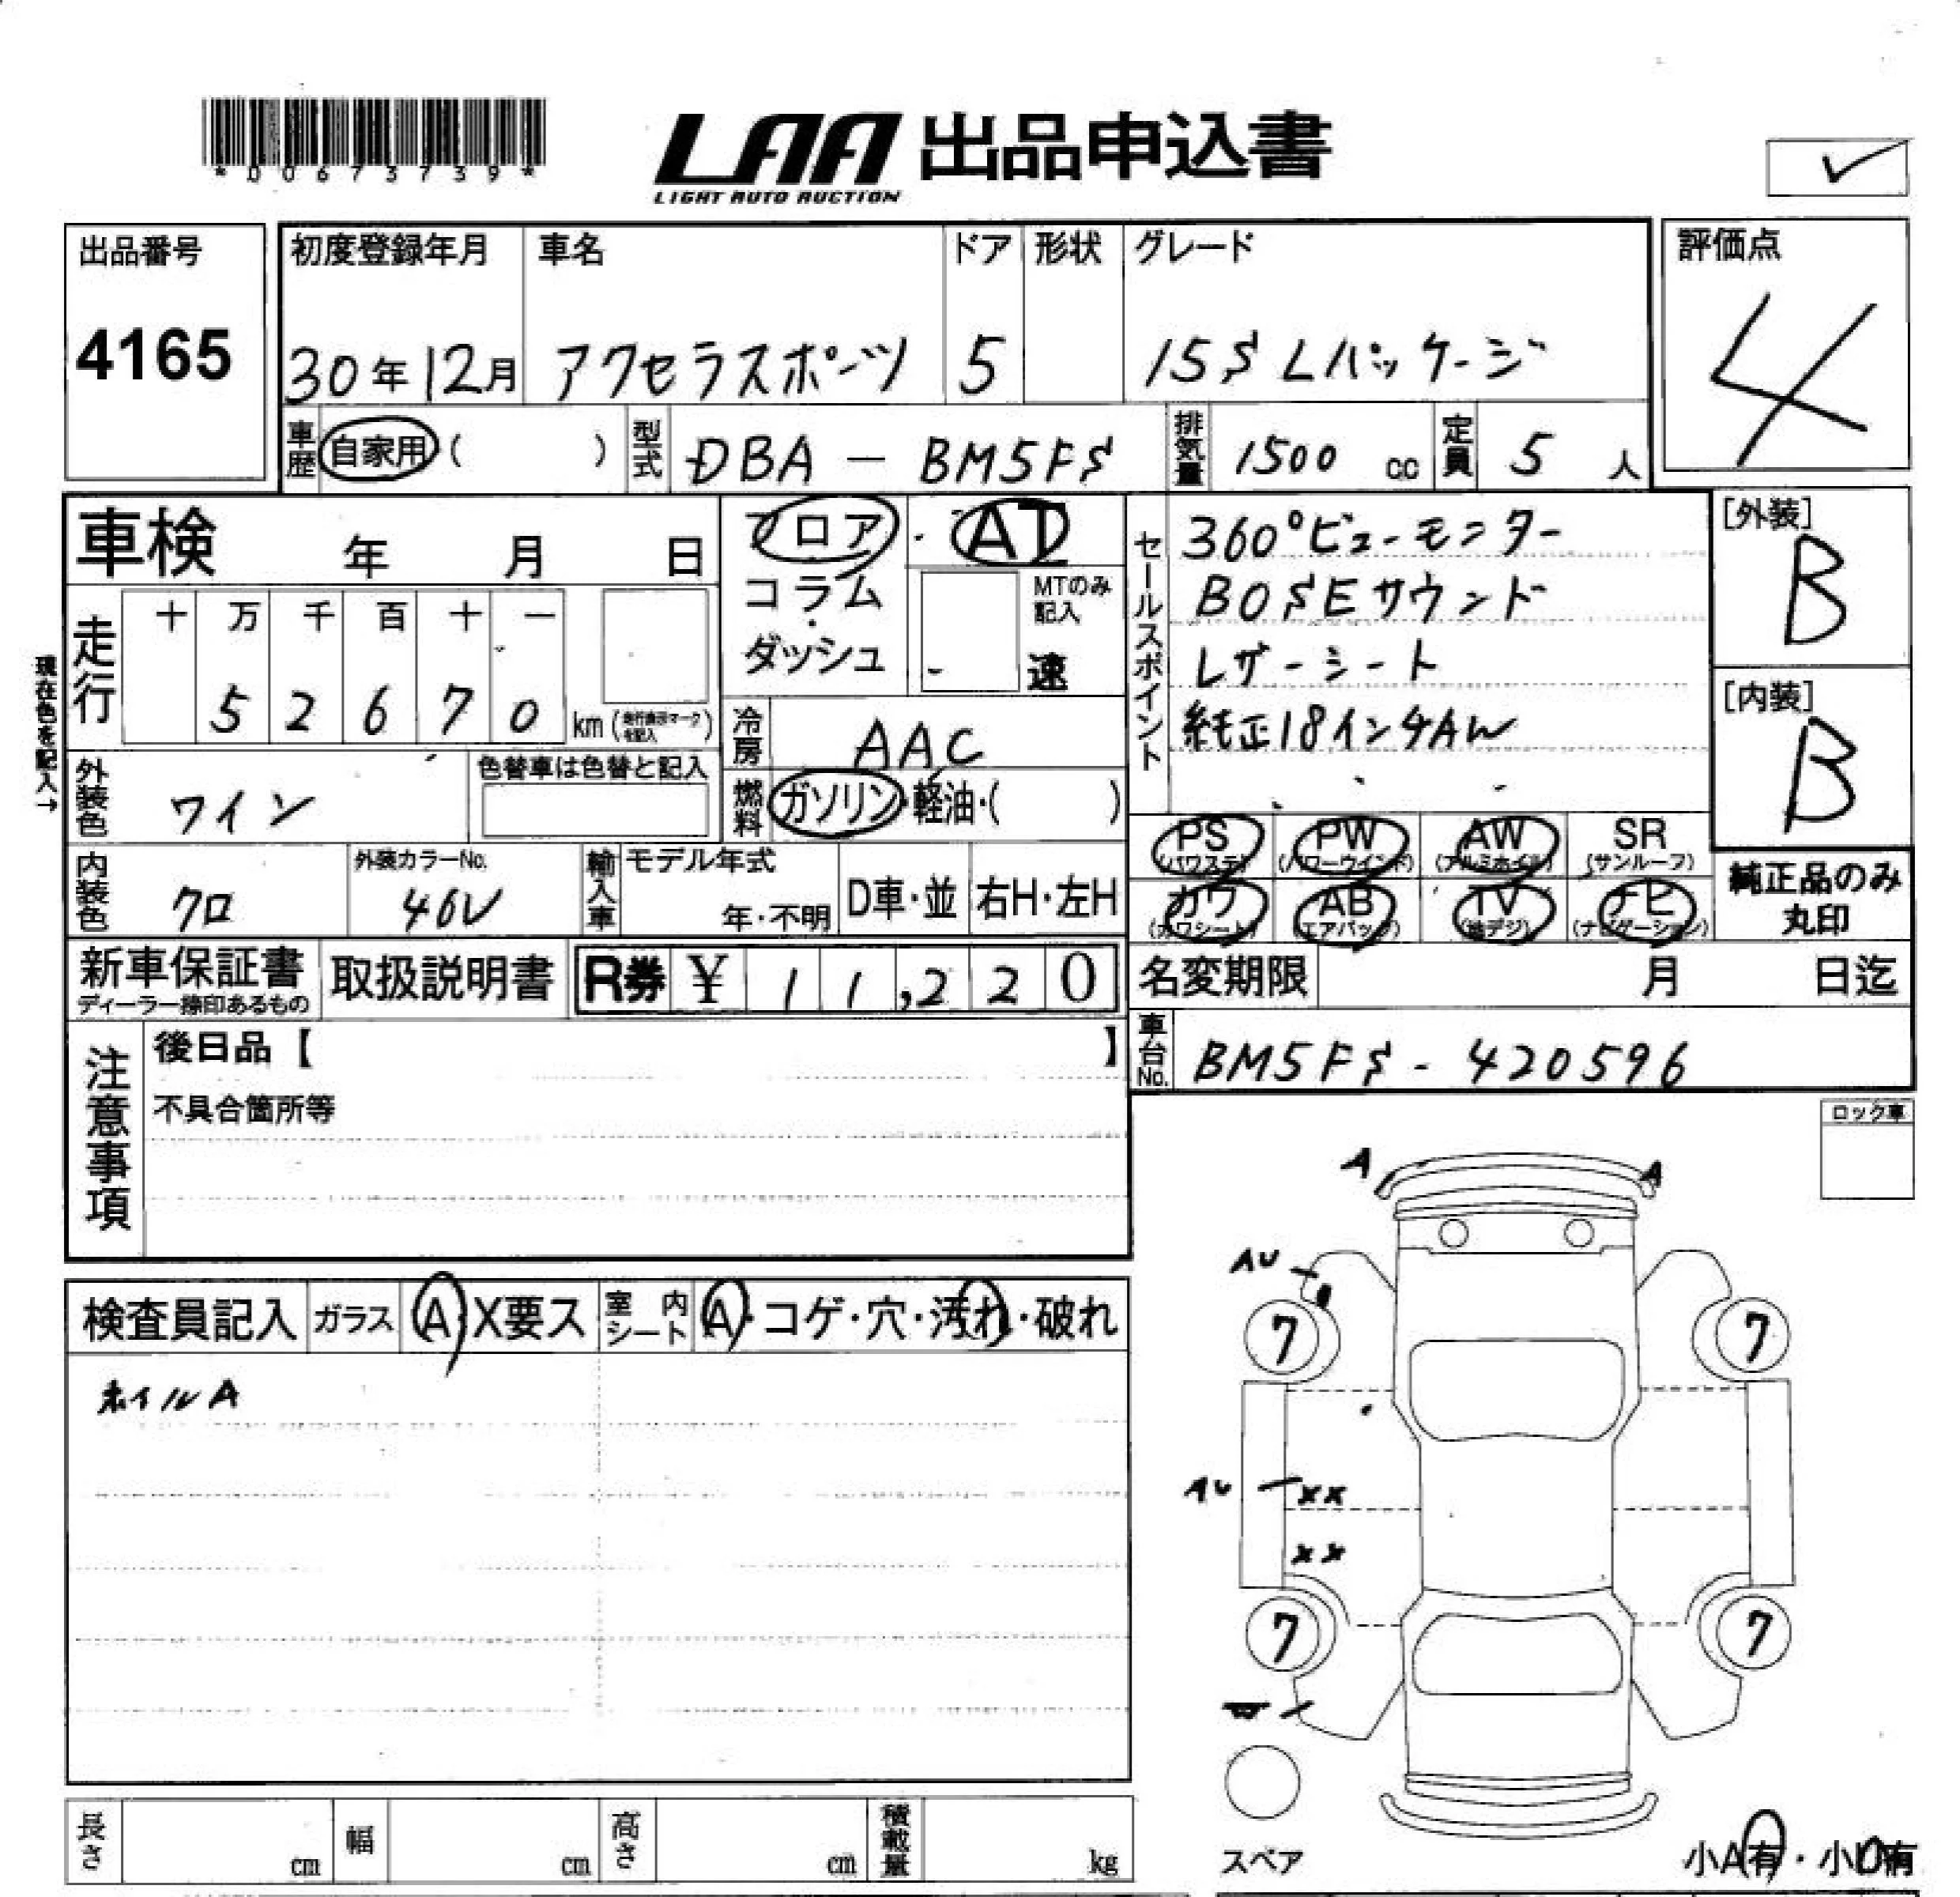 *00673739*
LAA 出品申込書
LIGHT AUTO AUCTION
出品番号 初度登録年月 車名 ドア 形状 グレード 評価点
4165 30年12月 アクセラスポーツ 5 15S Lパッケージ 4
車歴 自家用( ) 型式 DBA - BM5FS 排気量 1500 cc 定員 5 人
車検 年 月 日
フロア・コラム・ダッシュ AT
MTのみ記入 速
セールスポイント
360°ビューモニター
BOSEサウンド
レザーシート
純正18インチAW
[外装] B
[内装] B
現在色を記入→
走行 十 万 千 百 十 一
5 2 6 7 0 km (走行表示マークを記入)
冷房 AAC
外装色 ワイン 色替車は色替と記入
燃料 ガソリン・軽油・( )
PS (パワステ) PW (パワーウインド) AW (アルミホイル) SR (サンルーフ)
カワ (カワシート) AB (エアバック) TV (地デジ) ナビ (ナビゲーション)
純正品のみ丸印
内装色 クロ 外装カラーNo. 46V 輸入車 モデル年式 年・不明 D車・並 右H・左H
新車保証書 ディーラー捺印あるもの 取扱説明書 R券 ¥ 11,220
名変期限 月 日迄
車台No. BM5FS - 420596
注意事項
後日品【 】
不具合箇所等
ロック車
検査員記入 ガラス A X要ス 室内シート A・コゲ・穴・汚れ・破れ
ホイルA
A A
AU
7 7
AU XX
XX
7 7
W
スペア
小A有・小U有
長さ cm 幅 cm 高さ cm 積載量 kg